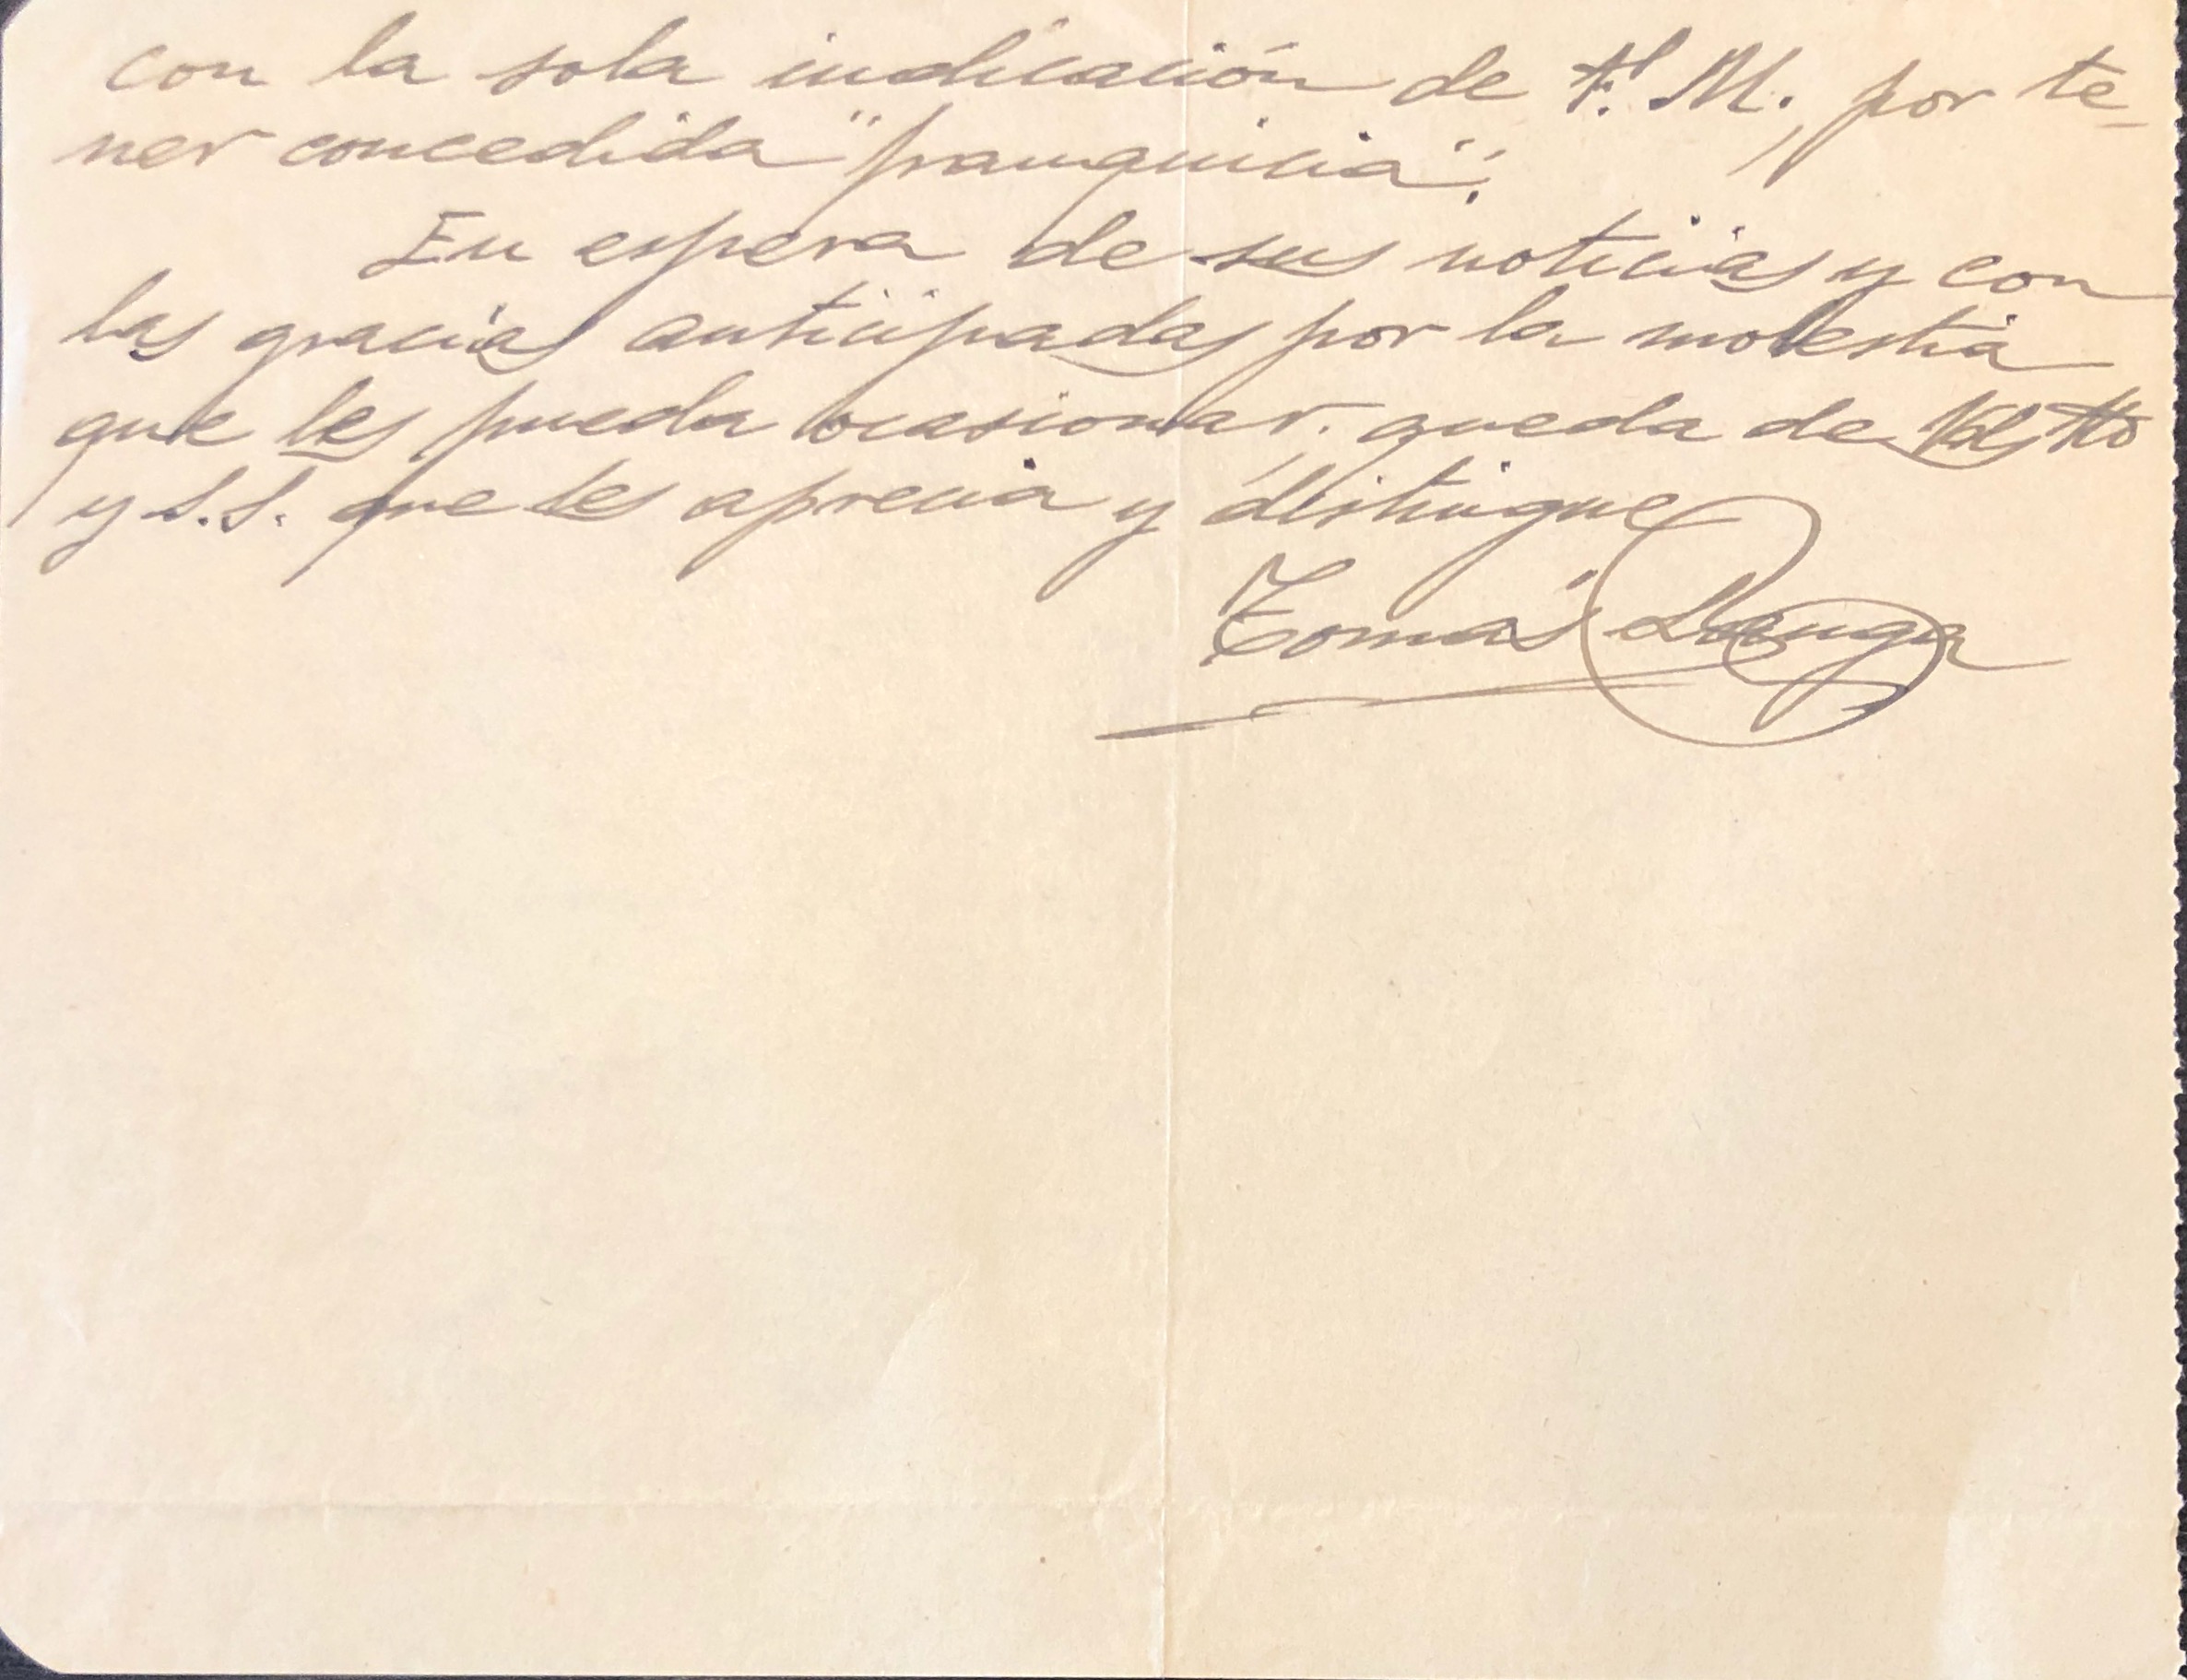 con la sola indicación de F. M., por te-
ner concedida "franquicia".
En espera de sus noticias y con
las gracias anticipadas por la molestia
que les pueda ocasionar. queda de Vds atto
y s.s. que les aprecia y distingue
Tomás Llanga